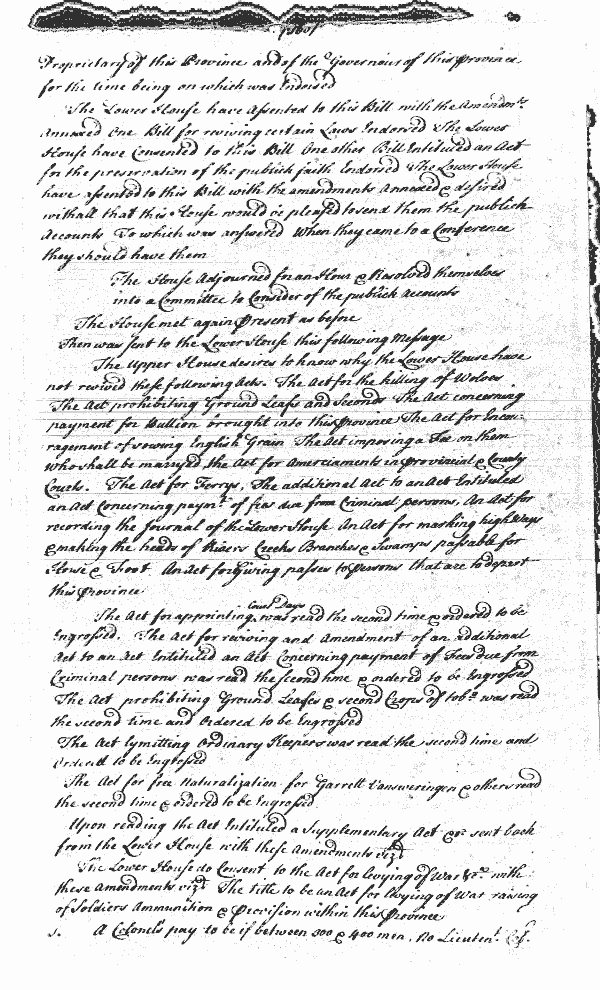 Proprietary of this Province and of the Governour of this Province
for the time being on which was Endorsed
The Lower House have Assented to this Bill with the Amendmts
annexed One Bill for reviving certain Laws Endorsed The Lower
House have Consented to this Bill One other Bill Entituled an Act
for the preservation of the publick faith Endorsed The Lower House
have assented to this Bill with the amendments Annexed & desired
withall that this House would be pleased to send them the publick
Accounts To which was answered When they came to a Conference
they should have them
The House Adjourned for an Hour & Resolved themselves
into a Committee to Consider of the publick accounts
The House met again Present as before
Then was sent to the Lower House this following Message
The Upper House desires to know why the Lower House have
not revived these following Acts. The Act for the killing of Wolves
The Act prohibiting Ground Leafs and Seconds The Act concerning
payment for Bullion brought into this Province, The Act for Encou-
ragement of sowing English Grain The Act imposing a Fee on them
who shall be marryed, the Act for Amerciaments in Provincial & County
Courts. The Act for Ferrys, The additional Act to an Act Entituled
an Act Concerning paymt of fees due from Criminal persons, An Act for
recording the Journal of the Lower House An Act for marking high Ways
& making the heads of Rivers Creeks Branches & Swamps passable for
Horse & Foot An Act for Giving passes to Persons that are to depart
this Province
Court Days
The Act for appointing, was read the second time & ordered to be
Engrossed. The Act for reviving and Amendment of an additional
Act to an Act Entituled an Act Concerning payment of Fees due from
Criminal persons was read the second time & ordered to be Engrossed
The Act prohibiting Ground Leafes & second Crops of tobo was read
the second time and Ordered to be Engrossed
The Act Lymitting Ordinary Keepers was read the second time and
Ordered to be Engrossed
The Act for free Naturalization for Garrett Vansweringen & others read
the second time & ordered to be Engrossed
Upon reading the Act Entituled a Supplementary Act &c sent back
from the Lower House with these Amendments vizt
The Lower House do Consent to the Act for Levying of War &ca with
these Amendments vizt The title to be an Act for Levying of War raising
of Soldiers Ammunition & Provision within this Province
1. A Colonel's pay to be if between 300 & 400 men, No Lieutent Col.